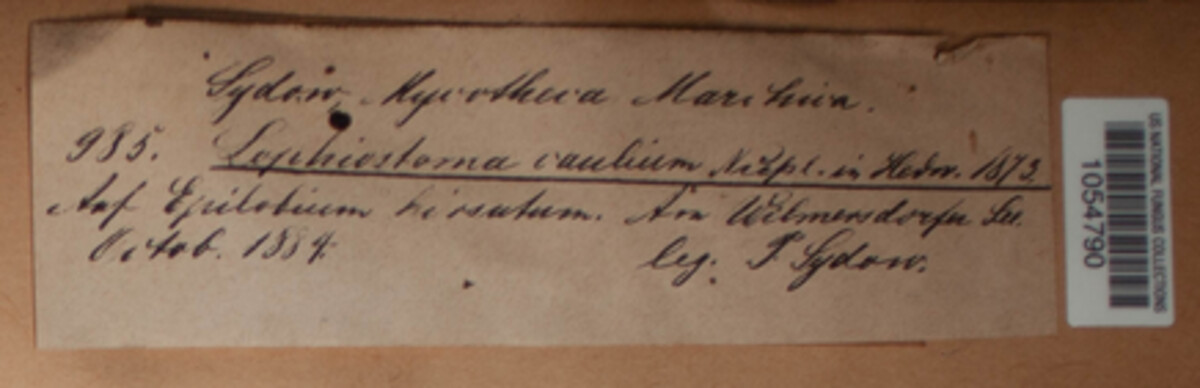 Sydow, Mycotheca Marchica.
985. Lophiostoma caulium Nitzpl. in Hedw. 1873.
Auf Epilobium hirsutum. Am Wilmersdorfer See.
Octob. 1884. leg. P. Sydow.
US NATIONAL FUNGUS COLLECTIONS
1054790